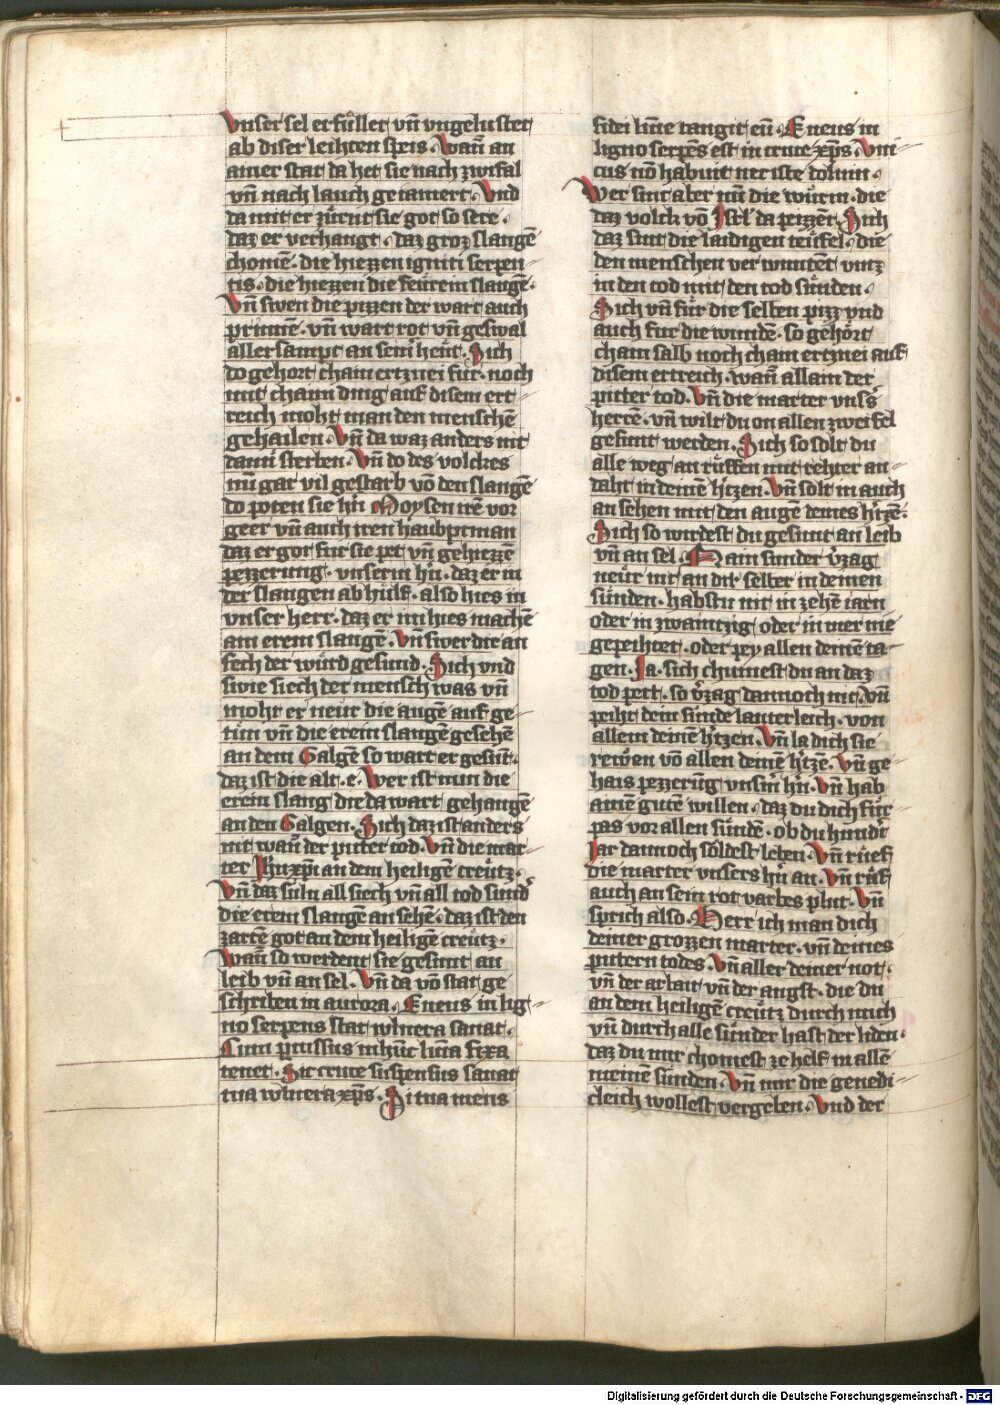 Vnser sel erfúllet vñ vngelustet
ab diser leihten speis. Wañ an
ainer stat da het sie nach zwifal
vñ nach lauch geiamert. Vnd
da mit er zürnt sie got so sere.
daz er verhangt. daz groz slangē
chomē. die hiezzen igniti serpen-
tis. die hiezzen die feürein slangē.
Vñ swen die pizzen der wart auch
prinnē. vñ wart rot vñ geswal
aller sampt an seinē heüt. Sich
do gehort chain ertznei für. noch
mit chaim ding auf disem ert
reich moht man den menschē
gehailen. Vñ da waz anders nit
dann sterben. Vñ do des volckes
nū gar vil gestarb vō den slangē
do poten sie hn̄ Moysen irē vor
geer vñ auch iren haubptman
daz er got fur sie pet vñ gehiezzē
pezzerung. vnserm hn̄. daz er in
der slangen ab hülf. also hies in
vnser herr. daz er im hies machē
ain erein slangē. Vñ swer die an
sech der würd gesund. Sich vnd
swie siech der mensch was vñ
moht er neur die augē auf ge-
tun vñ die erein slangē gesehē
an dem Galgē so wart er gesūt.
daz ist die alt. e. Wer ist nun die
erein slang die da wart gehangē
an den Galgen. Sich daz ist anders
nit wañ der pitter tod. Vñ die mar-
ter Jhu xp̄i an dem heiligē creütz.
Vñ daz süln all siech vñ all tod sünd'
die erein slangē an sehē. daz ist den
zartē got an dem heiligē creütz.
Wañ so werdent sie gesunt an
leib vñ an sel. Vñ da vō stat ge
schriben in aurora. Eneus in lig-
no serpens stat wlnera sanat.
Cum percussus in hūc lumina fixa
tenet. Sic cruce suspensus sanat
tua wlnera xp̄s. Si tua mens
fidei lumine tangit eū. Eneus in
ligno serpēs est in cruce xp̄s. Vni-
cus nō habuit nec iste dolum.
Wer sint aber nū die würm. die
daz volck vō Isrl' da peizzēt. Sich
daz sint die laidigen teüfel. die
den menschen ver wuntēt vntz
in den tod mit den tod sünden.
Sich vñ für die selben pizz vnd
auch für die wundē. so gehört
chain salb noch chain ertznei auf
disem ertreich. wañ allain der
pitter tod. Vñ die marter vnsers
herrē. vñ wilt du on allen zweifel
gesunt werden. Sich so solt du
alle weg an rüffen mit rehter an-
daht in deinē h'tzen. Vñ solt in auch
an sehen mit den augē deines h'tzē.
Sich so wirdest du gesunt an leib
vñ an sel. Kain sunder v'zag
neür nit an dir selber in deinen
sünden. habstu nit in zehē iarn
oder in zwaintzig oder in mer nie
gepeihtet. oder pey allen deinē ta-
gen. Ja. sich chumest du an daz
tod pett. so v'zag dannoch nit. Vñ
peiht dein sünde lauterleich. von
allem deinē h'tzen. Vñ la dich sie
rewen vō allen deinē h'tzē. Vñ ge-
hais pezzerūg vnserm hn̄. Vñ hab
ainē gutē willen. daz du dich für
pas vor allen sündē. ob du hund't
Jar dannoch söldest leben. Vñ rüef
die marter vnsers hn̄ an. Vñ rüf
auch an sein rot varbes plut. Vñ
sprich also. Herr ich man dich
deiner grozzen marter. vñ deines
pittern todes. Vñ aller deiner not.
vñ der arbait vñ der angst. die du
an dem heiligē creütz durch mich
vñ durch alle sünder hast der liden.
daz du mir chomest ze helf in allē
meinē sünden. Vñ mir die genedi-
cleich wollest vergeben. Vnd der
Digitalisierung gefördert durch die Deutsche Forschungsgemeinschaft - DFG